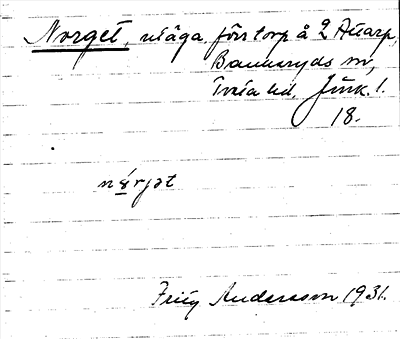 Norget, utäga. förs torp å 2 Attarp,
Bankeryds sn,
Tveta hd. Jönk. l.
18.
nórjət
Fritz Andersson 1931.